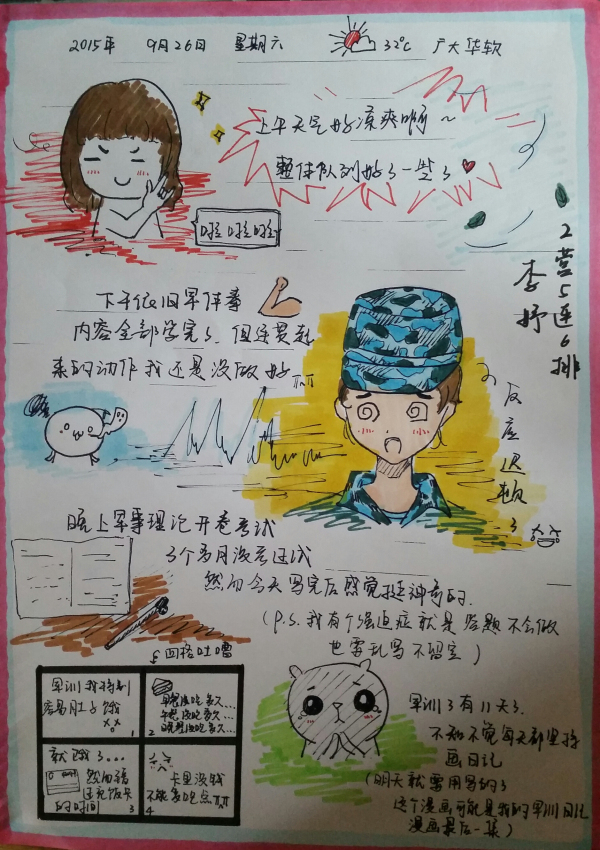 2015年 9月26日 星期六 32℃ 广大华软
上午天气好凉爽啊~
整体队列好了一些了
啦啦啦
2营5连6排
李妤
下午依旧军体拳
内容全部学完了,但连贯起
来的动作我还是没做好T.T
反应迟顿了
晚上军事理论开卷考试
3个多月没考过试
然而今天写完后感觉挺神奇的.
(P.S.我有个强迫症就是答题不会做
也要乱写不留空)
四格吐嘈
军训我特别
容易肚子饿
1
早餐没吃多久...
午饭没吃多久...
晚餐没吃多久...
2
就饿了...
然而错
过充饭卡
的时间
3
卡里没钱
不能多吃点T.T
4
军训了有11天了.
不知不觉每天都坚持
画日记
(明天就要用写的了
这个漫画可能是我的军训日记
漫画最后一集)